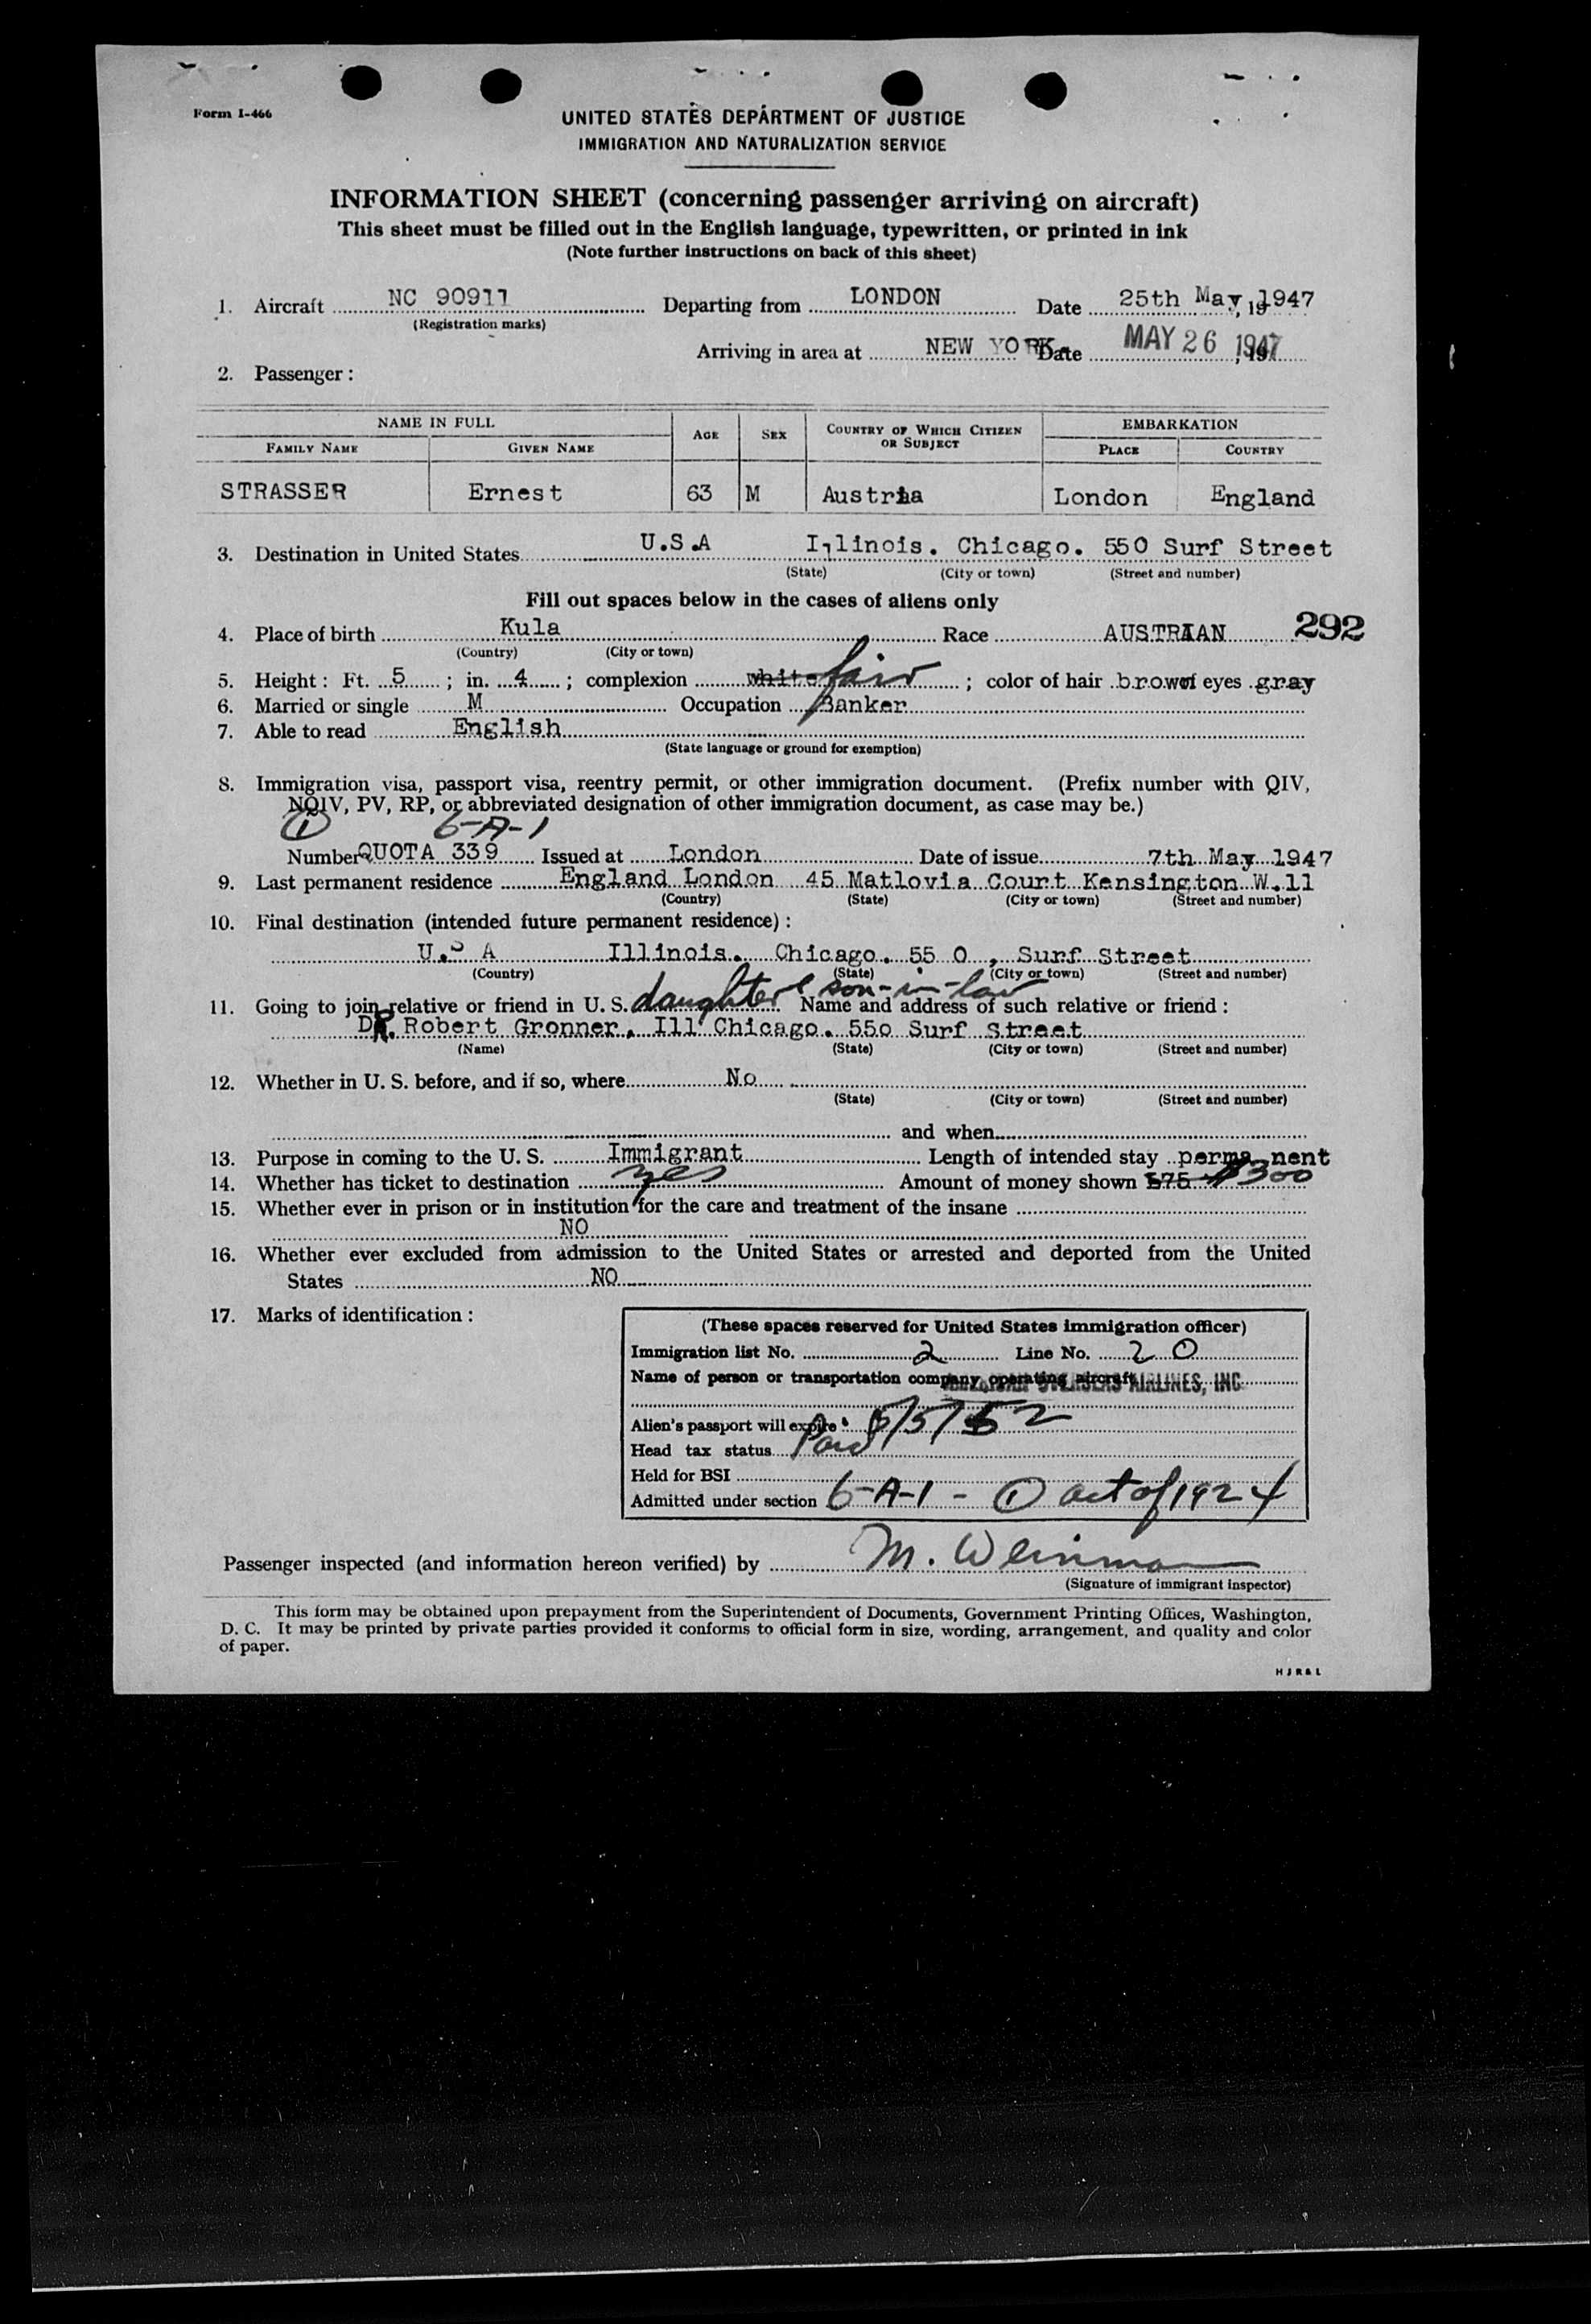 Form I-466
UNITED STATES DEPARTMENT OF JUSTICE
IMMIGRATION AND NATURALIZATION SERVICE
INFORMATION SHEET (concerning passenger arriving on aircraft)
This sheet must be filled out in the English language, typewritten, or printed in ink
(Note further instructions on back of this sheet)
1. Aircraft NC 90911 Departing from LONDON Date 25th May, 1947
(Registration marks)
Arriving in area at NEW YORK. Date MAY 26 1947
2. Passenger:
NAME IN FULL AGE SEX COUNTRY OF WHICH CITIZEN OR SUBJECT EMBARKATION
FAMILY NAME GIVEN NAME PLACE COUNTRY
STRASSER Ernest 63 M Austria London England
3. Destination in United States U.S.A Illinois. Chicago. 550 Surf Street
(State) (City or town) (Street and number)
Fill out spaces below in the cases of aliens only
4. Place of birth Kula Race AUSTRIAN 292
(Country) (City or town)
5. Height: Ft. 5 ; in. 4 ; complexion white fair ; color of hair brown of eyes gray
6. Married or single M Occupation Banker
7. Able to read English
(State language or ground for exemption)
8. Immigration visa, passport visa, reentry permit, or other immigration document. (Prefix number with QIV,
NQIV, PV, RP, or abbreviated designation of other immigration document, as case may be.)
1 6-A-1
Number QUOTA 339 Issued at London Date of issue 7th May 1947
9. Last permanent residence England London 45 Matlovia Court Kensington W.11
(Country) (State) (City or town) (Street and number)
10. Final destination (intended future permanent residence):
U.S A Illinois. Chicago. 55 0, Surf Street
(Country) (State) (City or town) (Street and number)
11. Going to join relative or friend in U. S. daughter & son-in-law Name and address of such relative or friend:
DR. Robert Gronner, Ill Chicago. 550 Surf Street
(Name) (State) (City or town) (Street and number)
12. Whether in U. S. before, and if so, where No
(State) (City or town) (Street and number)
and when
13. Purpose in coming to the U. S. Immigrant Length of intended stay permanent
14. Whether has ticket to destination yes Amount of money shown £75 $300
15. Whether ever in prison or in institution for the care and treatment of the insane
NO
16. Whether ever excluded from admission to the United States or arrested and deported from the United
States NO
17. Marks of identification:
(These spaces reserved for United States immigration officer)
Immigration list No. 2 Line No. 20
Name of person or transportation company operating aircraft OVERSEAS AIRLINES, INC
Alien's passport will expire 5/5/52
Head tax status Paid
Held for BSI
Admitted under section 6-A-1 - 1 act of 1924
Passenger inspected (and information hereon verified) by M. Weinman
(Signature of immigrant inspector)
This form may be obtained upon prepayment from the Superintendent of Documents, Government Printing Offices, Washington,
D. C. It may be printed by private parties provided it conforms to official form in size, wording, arrangement, and quality and color
of paper.
HJR&L